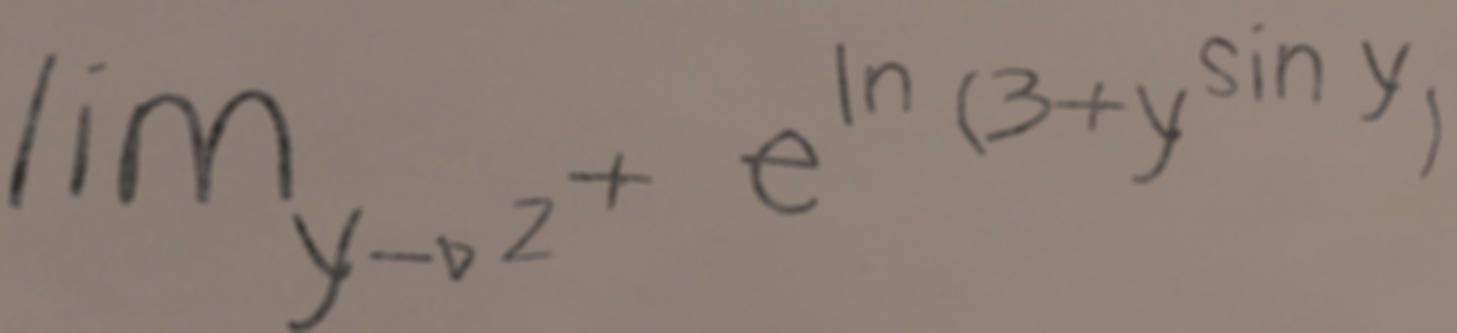 \lim_{y \to 2^+} e^{\ln (3+y^{\sin y})}